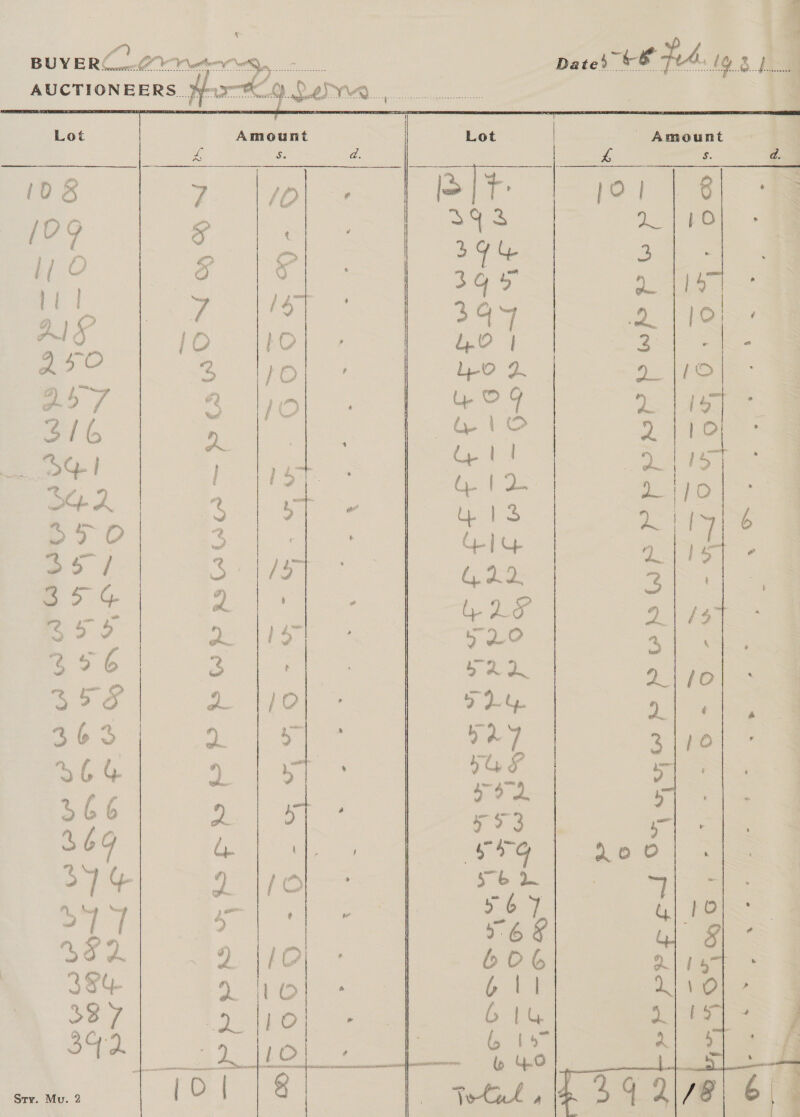 BUYER
Dates Feb. 1931
AUCTIONEERS
Lot Amount
£ s. d.
108 7 10 "
109 8 " "
110 8 8 "
111 7 15 "
218 10 10 "
250 3 10 "
257 3 10 "
316 2 " "
341 1 15 "
342 3 5 "
350 3 " "
351 3 15 "
354 2 " "
355 2 15 "
356 3 " "
358 2 10 "
363 2 5 "
364 2 5 "
366 2 5 "
369 4 " "
374 2 10 "
377 5 " "
382 2 10 "
384 2 10 "
387 2 10 "
392 2 10 "
101 8
Sty. Mu. 2
Lot Amount
£ s. d.
B/F. 101 8 "
393 2 10 "
394 3 " "
395 2 15 "
397 2 10 "
401 3 " "
402 2 10 "
409 2 15 "
410 2 10 "
411 2 15 "
412 2 10 "
413 2 17 6
414 2 15 "
422 3 " "
428 2 15 "
520 3 " "
522 2 10 "
524 2 " "
527 3 10 "
548 5 " "
552 5 " "
553 5 " "
559 200 "
562 7 " "
567 4 10 "
568 4 8 "
606 2 15 "
611 2 10 "
614 2 15 "
615 2 5 "
640 1 5 "
Total £ 392 18 6